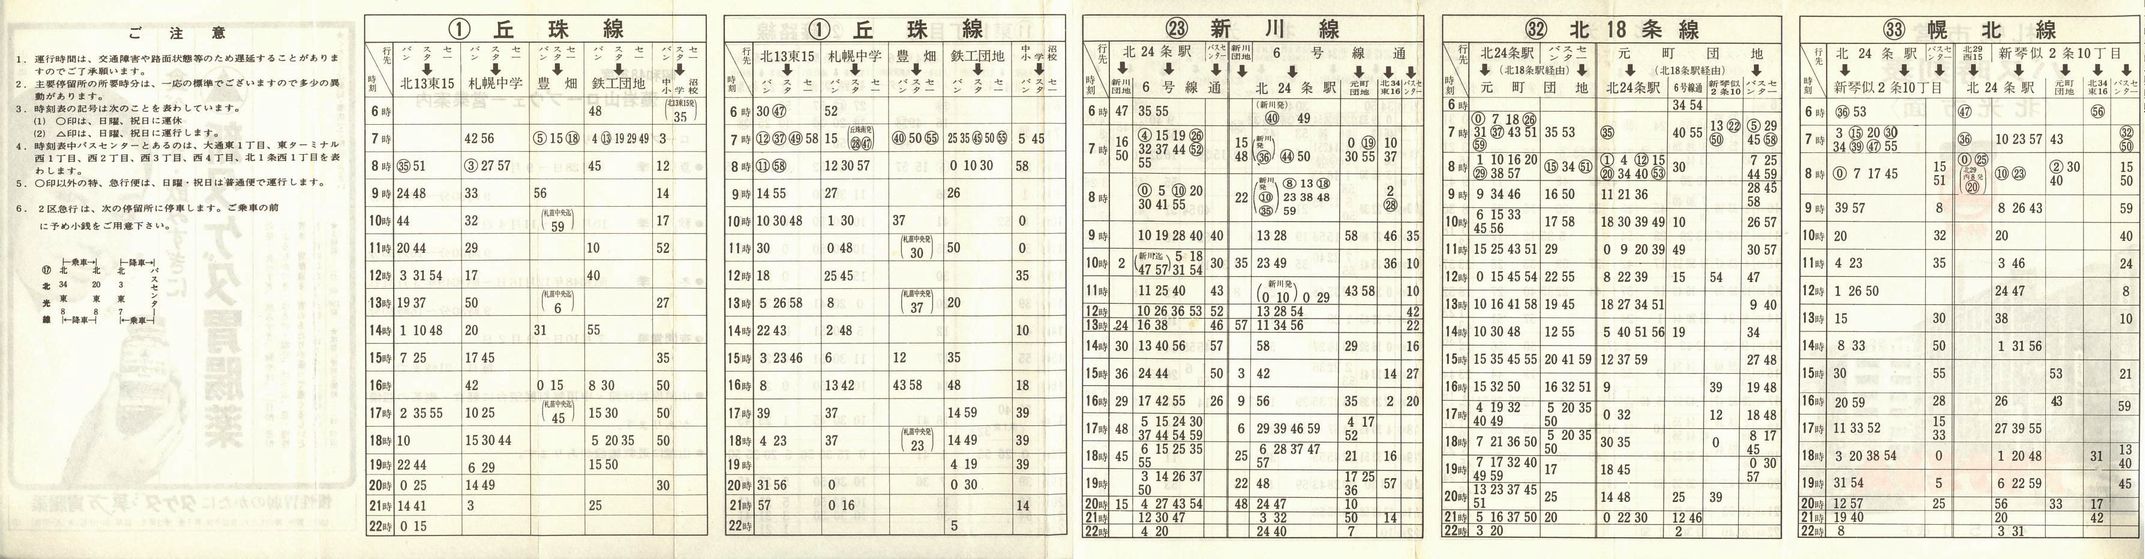 ご注意
1．運行時間は、交通障害や路面状態等のため遅延することがありま
すのでご了承願います。
2．主要停留所の所要時分は、一応の標準でございますので多少の異
動があります。
3．時刻表の記号は次のことを表わしています。
(1) ○印は、日曜、祝日に運休
(2) △印は、日曜、祝日に運行します。
4．時刻表中バスセンターとあるのは、大通東1丁目、東ターミナル
西1丁目、西2丁目、西3丁目、西4丁目、北1条西1丁目を表わ
します。
5．○印以外の特、急行便は、日曜・祝日は普通便で運行します。
6．2区急行は、次の停留所に停車します。ご乗車の前
に予め小銭をご用意下さい。
⑰北光線
├乗車→┤ ├降車→┤
北34東8 北20東8 北3東7 バスセンター
├←降車┤ ├←乗車┤
① 丘珠線
行先 時刻
バスセ↓北13東15 バスセ↓札幌中学 バスセ↓豊畑 バスセ↓鉄工団地 バスセ↓中沼小学校
6時 48 (北13東15発 35)
7時 42 56 ⑤ 15 ⑱ 4 ⑬ 19 29 49 3
8時 ㉟ 51 ③ 27 57 45 12
9時 24 48 33 56 14
10時 44 32 (札苗中央迄 59) 17
11時 20 44 29 10 52
12時 3 31 54 17 40
13時 19 37 50 (札苗中央迄 6) 27
14時 1 10 48 20 31 55
15時 7 25 17 45 35
16時 42 0 15 8 30 50
17時 2 35 55 10 25 (札苗中央迄 45) 15 30 50
18時 10 15 30 44 5 20 35 50
19時 22 44 6 29 15 50
20時 0 25 14 49 30
21時 14 41 3 25
22時 0 15
① 丘珠線
行先 時刻
北13東15↓バスセン 札幌中学↓バスセン 豊畑↓バスセン 鉄工団地↓バスセン 中沼小学校↓バスセン
6時 30 ㊼ 52
7時 ⑫ ㊲ ㊾ 58 15 (丘珠街発 ㉘ ㊼) ㊵ 50 55 25 35 ㊺ 50 55 5 45
8時 ⑪ 58 12 30 57 0 10 30 58
9時 14 55 27 26
10時 10 30 48 1 30 37 0
11時 30 0 48 (札苗中央発 30) 50 0
12時 18 25 45 35
13時 5 26 58 8 (札苗中央発 37) 20
14時 22 43 2 48 10
15時 3 23 46 6 12 35
16時 8 13 42 43 58 48 18
17時 39 37 14 59 39
18時 4 23 37 (札苗中央発 23) 14 49 39
19時 4 19 39
20時 31 56 0 0 30
21時 57 0 16 14
22時 5
㉓ 新川線
行先 時刻
北24条駅 バスセンター 新川団地 6号線通
新川団地 6号線通 北24条駅 元町団地 北34東16 バスセンター
6時 47 35 55 (新川発 ㊵) 49
7時 16 50 ④ 15 19 ㉖ 32 37 44 52 55 15 48 (新川発 ㊱) ㊹ 50 0 ⑲ 30 55 10 37
8時 ⓪ 5 ⑩ 20 30 41 55 22 (新川発 ⑩ ㉟) ⑧ 13 ⑱ 23 38 48 59 2 ㉘
9時 10 19 28 40 40 13 28 58 46 35
10時 2 (新川迄 47 57) 5 18 31 54 30 35 23 49 36 10
11時 11 25 40 43 (新川発 0 10) 0 29 43 58 10
12時 10 26 36 53 52 13 28 54 42
13時 24 16 38 46 57 11 34 56 22
14時 30 13 40 56 57 58 29 16
15時 36 24 44 50 3 42 14 27
16時 29 17 42 55 26 9 56 35 2 20
17時 48 5 15 24 30 37 44 54 59 6 29 39 46 59 4 17 52
18時 45 6 15 25 35 55 25 6 28 37 47 57 21 16
19時 3 14 26 37 50 22 48 17 25 36 57
20時 15 4 27 43 54 48 24 47 10
21時 12 30 47 3 32 50 14
22時 4 20 24 40 7
㉜ 北18条線
行先 時刻
北24条駅 バスセンター 元町団地
(北18条駅経由) (北18条駅経由)
元町団地 北24条駅 6号線通 新琴似2条10 バスセンター
6時 34 54
7時 ⓪ 7 18 ㉖ 31 ㊲ 43 51 59 35 53 ㉟ 40 55 13 ㉒ 50 ⑤ 29 45 58
8時 1 10 16 20 ㉙ 38 57 ⑮ 34 51 ① 4 ⑫ 15 ⑳ 34 40 53 30 7 25 44 59
9時 9 34 46 16 50 11 21 36 28 45 58
10時 6 15 33 45 56 17 58 18 30 39 49 10 26 57
11時 15 25 43 51 29 0 9 20 39 49 30 57
12時 0 15 45 54 22 55 8 22 39 15 54 47
13時 10 16 41 58 19 45 18 27 34 51 9 40
14時 10 30 48 12 55 5 40 51 56 19 34
15時 15 35 45 55 20 41 59 12 37 59 27 48
16時 15 32 50 16 32 51 9 39 19 48
17時 4 19 32 40 49 5 20 35 50 0 32 12 18 48
18時 7 21 36 50 5 20 35 50 30 35 0 8 17 45
19時 7 17 32 40 49 59 17 18 45 0 30 57
20時 13 23 37 45 51 25 14 48 25 39
21時 5 16 37 50 20 0 22 30 12 46
22時 3 20 2
㉝ 幌北線
行先 時刻
北24条駅 バスセンター 北29西15 新琴似2条10丁目
新琴似2条10丁目 北24条駅 元町団地 北34東16 バスセンター
6時 ㊱ 53 ㊼ 56
7時 3 ⑮ 20 ㉚ 34 ㊴ ㊼ 55 ㊱ 10 23 57 43 ㉜ 50
8時 ⓪ 7 17 45 15 51 ⓪ ㉕ (北29西15発 ⑳) ⑩ ㉓ ② 30 40 15 50
9時 39 57 8 8 26 43 59
10時 20 32 20 40
11時 4 23 35 3 46 24
12時 1 26 50 24 47 8
13時 15 30 38 10
14時 8 33 50 1 31 56
15時 30 55 53 21
16時 20 59 28 26 43 59
17時 11 33 52 15 33 27 39 55
18時 3 20 38 54 0 1 20 48 31 13 40
19時 31 54 5 6 22 59 45
20時 12 57 25 56 33 17
21時 19 40 20 42
22時 8 3 31